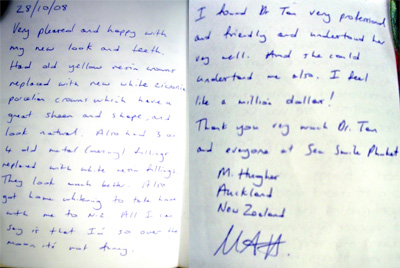 28/10/08
Very pleased and happy with
my new look and teeth.
Had old yellow resin crowns
replaced with new white zirconia
porcelian crowns which have a
great sheen and shape, and
look natural. Also had 3 or
4 old metal (mercury) fillings
replaced with white resin fillings.
They look much better. Also
got home whitening to take home
with me to N.Z. All I can
say is that I'm so over the
moon it's not funny.
I found Dr Tan very professional
and friendly and understood her
very well. And she could
understand me also. I feel
like a million dollar!
Thank you very much Dr. Tan
and everyone at Sea Smile Phuket
M. Hugher
Auckland
New Zealand